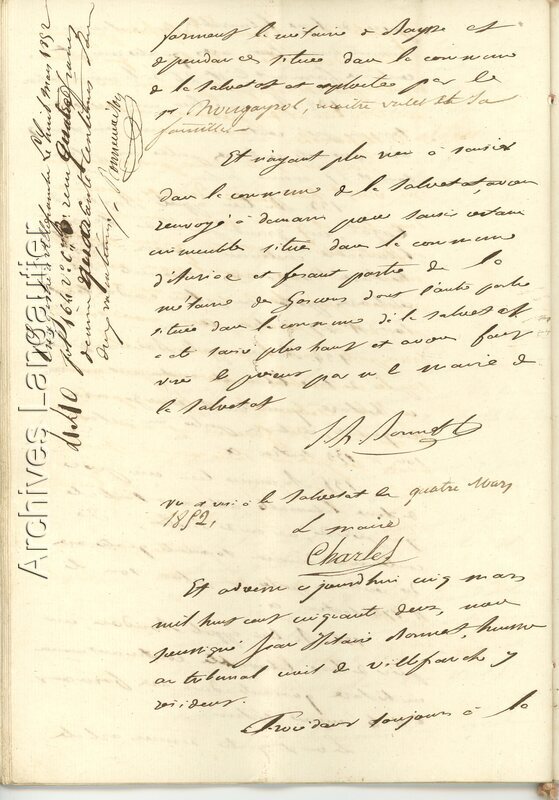 formant la métairie de Mayre et
dépendances située dans la commune
de la Salvetat et exploitée par le
sr Nougayrol, maître valet et sa
famille.
Et n'ayant plus rien à saisir
dans la commune de la Salvetat, avons
renvoyé à demain pour saisir certains
immeubles situés dans la commune
d'Auriac et fesant partie de la
métairie de dont l'autre partie
située dans la commune de la Salvetat
a été saisie plus haut et avons fait
viser le présent par m. le maire de
la Salvetat
J. h. Bonnet
vu et visé à la Salvetat le quatre Mars
1852,
Le maire
Charles
Et advenu aujourdhui cinq mars
mil huit cent cinquante deux, nous
soussigné Jean Hilaire Bonnet, huissier
au tribunal civil de villefranche y
résidant.
Procédant toujours à la
le huit mars 1852
fo 164 vo c. reçu quatre francs
decime quarante centimes
4 40
Archives Langautier